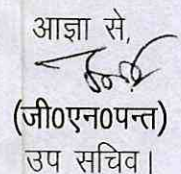 आज्ञा से,
(जी0एन0पन्त)
उप सचिव।